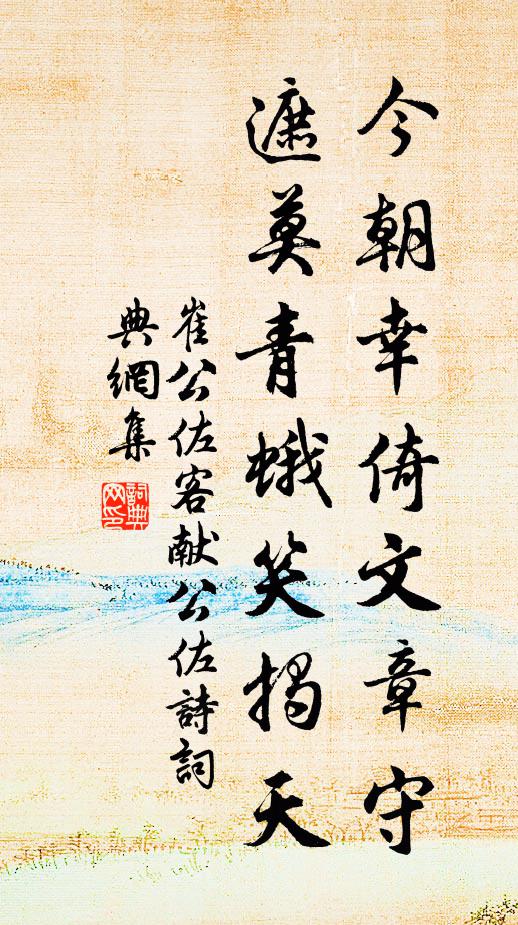 今朝幸倚文章守
遮莫青蛾笑揭天
崔公佐客献公佐詩詞
典網集
詞典
网印